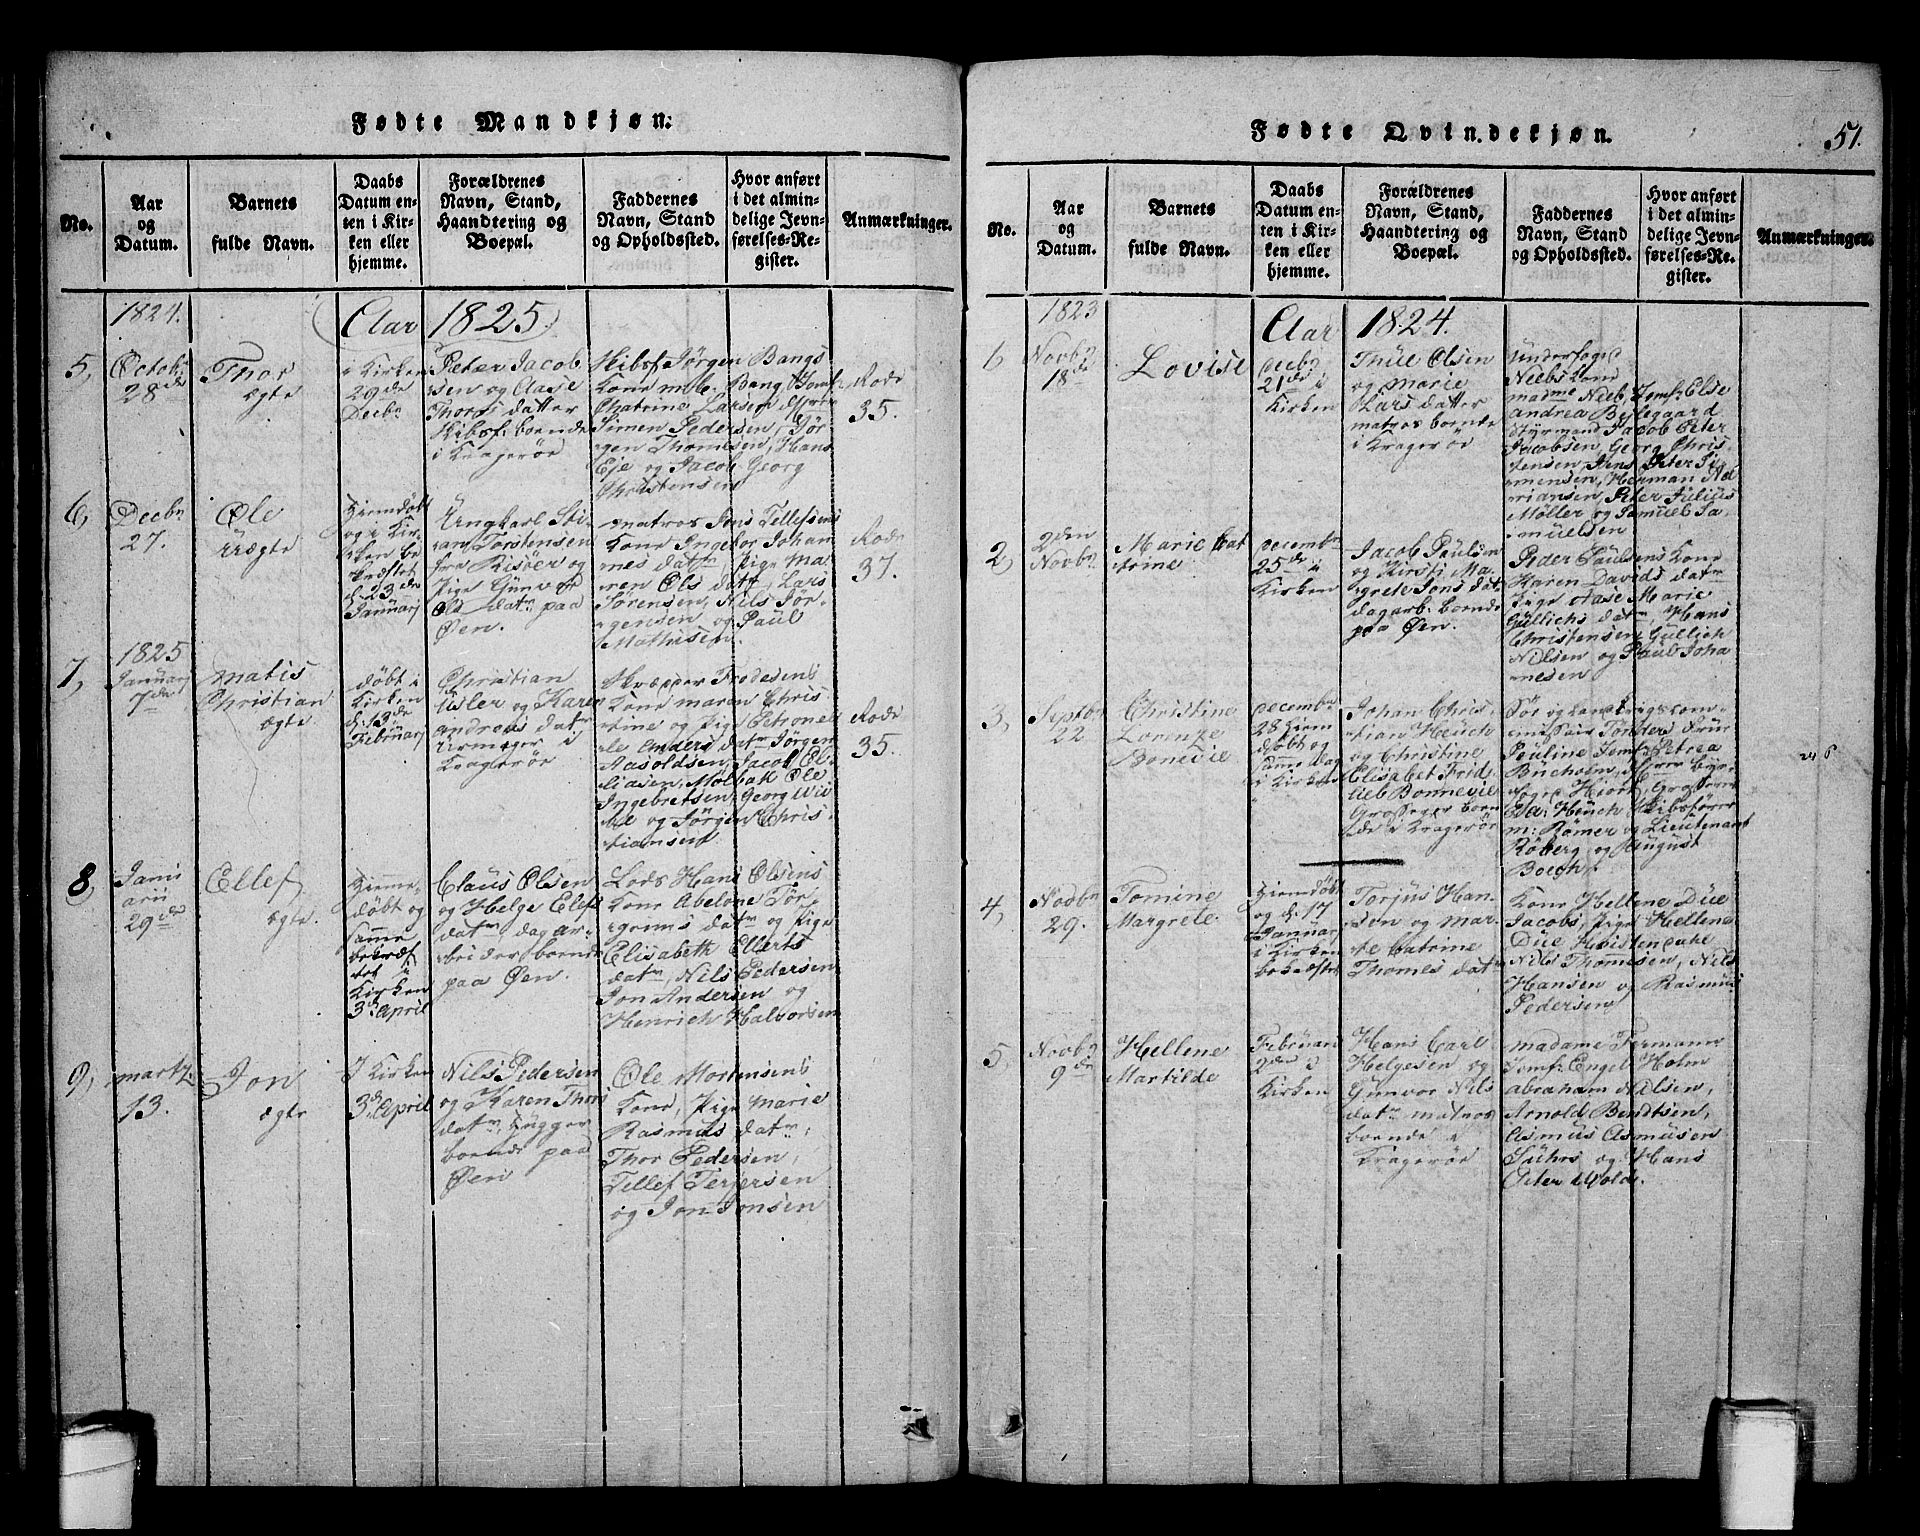 Fødte Mandkjøn.
No.
Aar
og
Datum.
Barnets
fulde Navn.
Daabs
Datum en-
ten i Kir-
ken eller
hjemme.
Forældrenes
Navn, Stand,
Haandtering og
Boepæl.
Faddernes
Navn, Stand
og Opholdssted.
Hvor anført
i det almin-
delige Jevn-
førelses-Re-
gister.
Anmærkninger.
1824.
Aar 1825
5,
Octobr
28de
Thor
ægte
i Kirken
29de
Decbr
Peter Jacob
sen og Aase
Thors datter
skibsf. boende
i Kragerøe
Skibsf Jørgen Bangs
Kone m. C. Bang Jomf.
Chatrine Larsen
Simen Pedersen, Jør
gen Thomesen, Hans
Eje og Jacob Georg
Christensen
Rode
35.
6,
Decbr
27.
Ole
uægte
Hjemdøbt
og i Kir-
ken be
kræftet
d. 23de
Januarj
Ungkarl Sti-
an Torstensen
fra Risöer og
Pige Gunvor
Ols datr paa
Øen.
matros Jens Tellefsens
Kone Ingebor Johan
nes datr, Pige Ma
ren Ols datr, Lars
Sørensen, Nils Jør
gensen og Paul
Mathisen.
Rode
37.
7,
1825
Januarj
7de
Matis
Christian
ægte
døbt i
Kirken
d. 13de
Februarj
Christian
Usler og Karen
Andreas datr
Urmager i
Kragerøe
Skræder Frodesens
Kone maren Chris
tine og Pige Petronel
le Anders datr Jørgen
Aasoldsen, Jacob El
liasen, Molbak Ole
Ingebretsen, Georg Wil
og Jørgen Chris
tiansen
Rode
35.
8,
Janu
arii
29de
Ellef
ægte.
Hjemme-
døbt og
samme
bekræf
tet i
Kirken
3d April
Claus Olsen
og Helge Elefs
datr dagar-
beider boende
paa Øen.
Lods Hans Olsens
Kone Abelone Tør
grims datr og Pige
Elisabeth Ellerts
datr, Nils Pedersen
Jon Andersen og
Henrich Halvorsen
9,
martz
13.
Jon
ægte
I Kirken
3d April
Nils Pedersen
og Karen Thors
datr,
boende paa
Øen
Ole Mortensens
Kone, Pige Marie
Rasmus datr,
Thor Pedersen,
Tellef Terjersen
og Jon Jonsen
Fødte Qvindekjøn.
51.
No.
Aar
og
Datum.
Barnets
fulde Navn.
Daabs
Datum en-
ten i Kir-
ken eller
hjemme.
Forældrenes
Navn, Stand,
Haandtering og
Boepæl.
Faddernes
Navn, Stand
og Opholdssted.
Hvor anført
i det almin-
delige Jevn-
førelses-Re-
gister.
Anmærkninger.
1823
Aar 1824.
1
Novbr
18de
Lovise
Decbr
21de i
Kirken
Thue Olsen
og Marie
Lars datter
matros boende
i Kragerøe
Underfoged
Niebs Kone
madme Nieb, Jomf. Else
Andrea Bislegaard
Styrmand Jacob Peter
Jacobsen, Georg Chris
tensen, Jens Peter Si
mensen, Herman Ad
riansen, Peter Julius
Møller og Samuel Sa
muelsen
2,
2den
Novbr
Marie Cat
trine
December
25de i
Kirken
Jacob Paulsen
og Kirsti Ma
grete Jons dat
dagarb. boende
paa Øen.
Peder Paulsens Kone
Karen Davids datr
Pige Aase Marie
Gullichs datr Hans
Christensen, Gullich
Nilsen og Paul Joha
nesen
3,
Septbr
22
Christine
Lorenze
Bonevie
December
28 Hjem
døbt og
samme Dag
i Kirken
Johan Chris
tian Heuch
og Christine
Elisabet Frid
lieb Bonnevie
Grosserer boen
de i Kragerøe
Sør og Land Krigscom
missair Tønder Frue
Pauline Jomf. Petrea
Bucholm,
Hjort, Grosserer
Heuch Skibsfører
M: Rømer og Lieutenant
Roberg og August
Boeck
4,
Nodbr
29.
Tomine
Margrete.
Hjemdøbt
og d. 17
Januar
i Kirken
bekræftet
Torjus Han
sen og Mar-
te Catrine
Thomes datr
Kone Hellene Due
Jacobs, Pige Hellene
Due
Nils Thommesen, Nils
Hansen og Rasmus
Pedersen
5,
Novbr
9de
Hellene
Martilde
Februar
2den i
Kirken
Hans Carl
Helgesen og
Gunvor Nils
datr matros
boende i
Kragerøe
Madame Fermann
Jomf. Engel Holm
Abraham Nilsen,
Arnold Bendtsen,
Asmus Asmusen
Suhrs og Hans
Peter Wold.